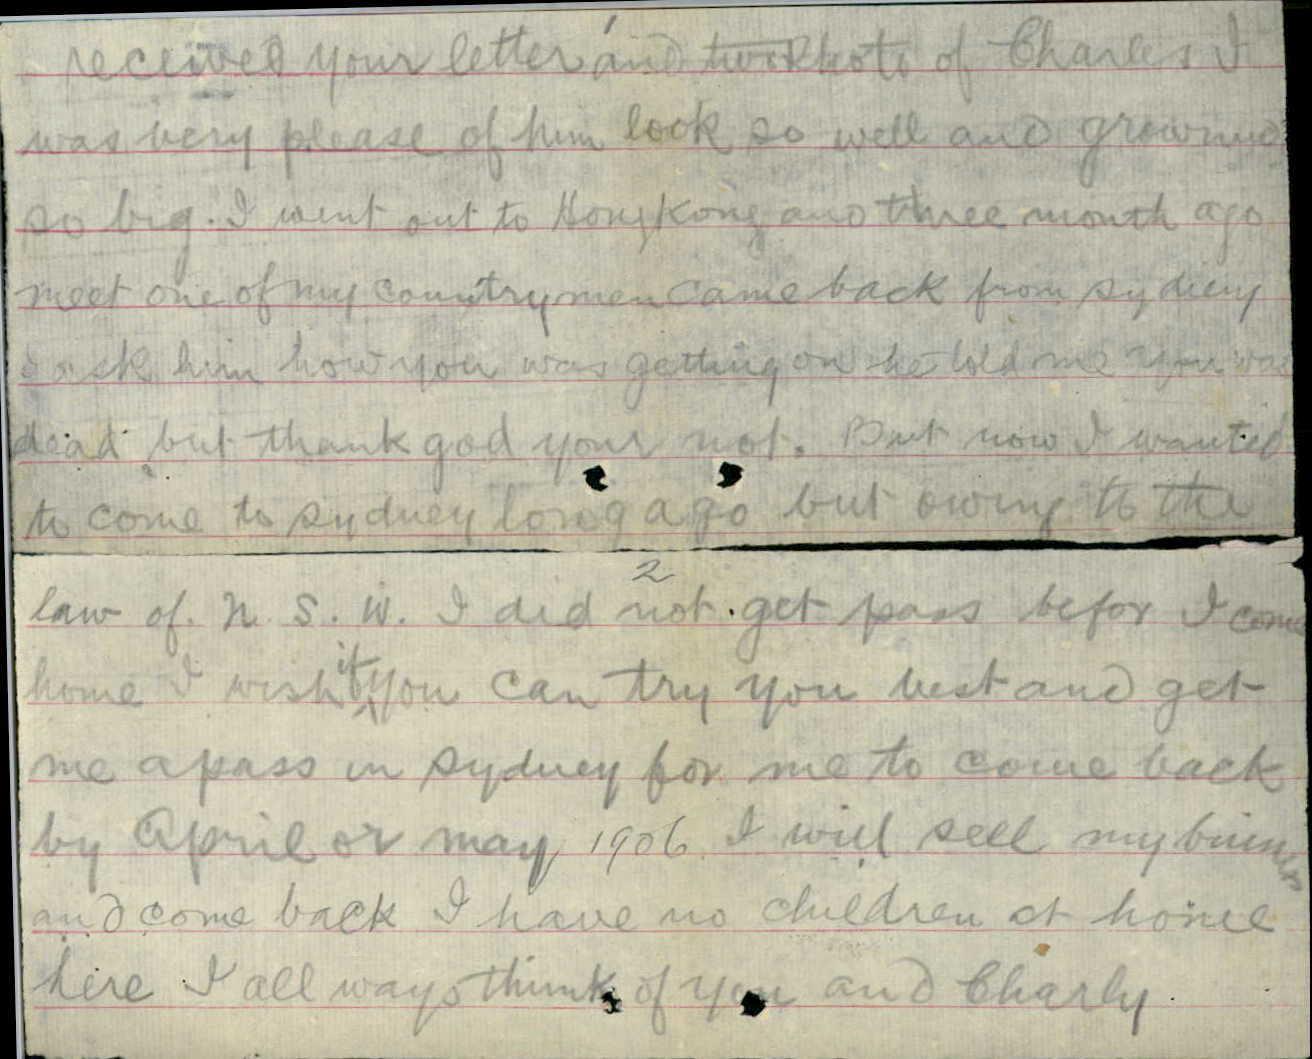 received your letter and two photo of Charles I
was very please of him look so well and growned
so big. I went out to HongKong and three month ago
meet one of my countrymen came back from sydney
I ask him how you was getting on he told me you was
dead but thank god your not. But now I wanted
to come to sydney long ago but owing to the
2
law of. N. S. W. I did not get pass befor I come
home I wish if you can try you best and get
me a pass in sydney for me to come back
by April or may 1906 I will sell my
and come back I have no children at home
here I all ways think of you and Charly